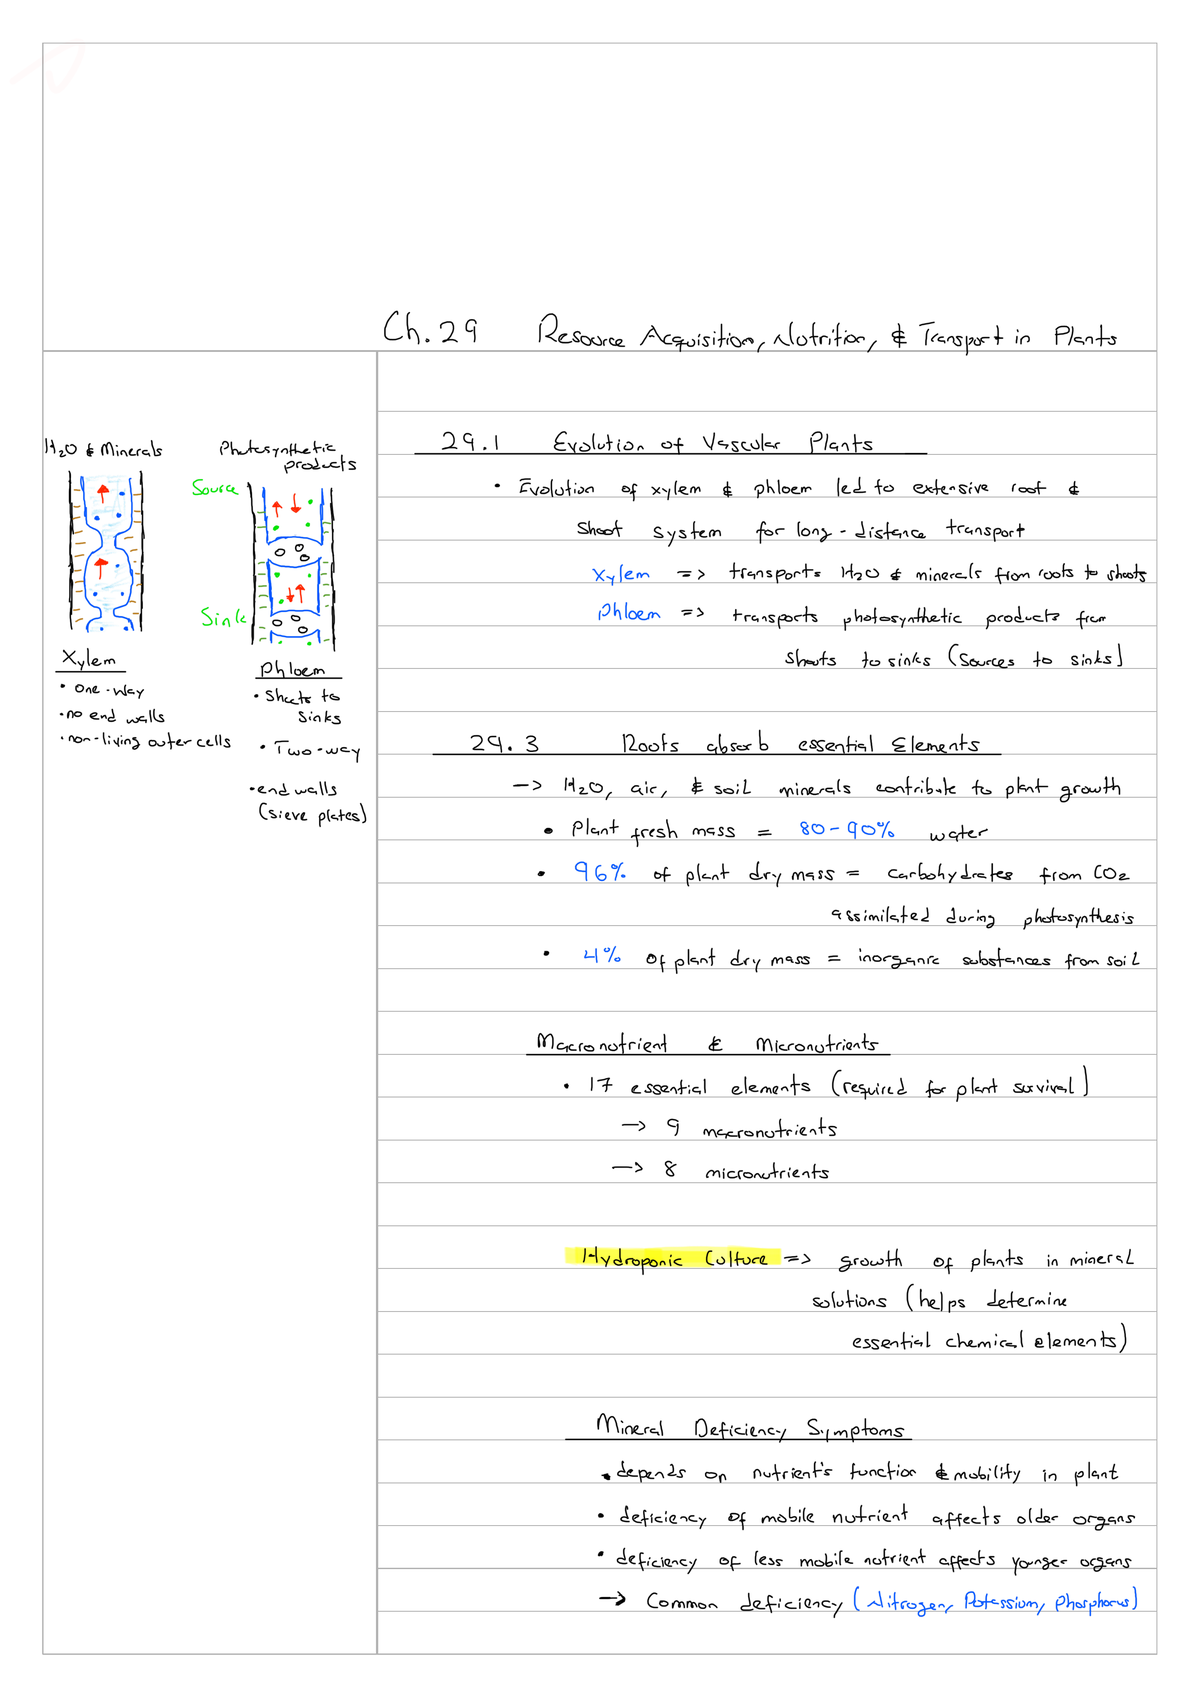 Ch. 29 Resource Acquisition, Nutrition, & Transport in Plants
H2O & Minerals
Photosynthetic
products
Source
Sink
Xylem
• one-way
• no end walls
• non-living outer cells
Phloem
• Shoots to
sinks
• Two-way
• end walls
(sieve plates)
29.1 Evolution of Vascular Plants
• Evolution of xylem & phloem led to extensive root &
shoot system for long-distance transport
Xylem => transports H2O & minerals from roots to shoots
Phloem => transports photosynthetic products from
shouts to sinks (sources to sinks)
29.3 Roots absorb essential Elements
-> H2O, air, & soil minerals contribute to plant growth
• Plant fresh mass = 80-90% water
• 96% of plant dry mass = carbohydrates from CO2
assimilated during photosynthesis
• 4% of plant dry mass = inorganic substances from soil
Macronutrient & Micronutrients
• 17 essential elements (required for plant survival)
-> 9 macronutrients
-> 8 micronutrients
Hydroponic Culture => growth of plants in mineral
solutions (helps determine
essential chemical elements)
Mineral Deficiency Symptoms
• depends on nutrient's function & mobility in plant
• deficiency of mobile nutrient affects older organs
• deficiency of less mobile nutrient affects younger organs
-> Common deficiency (Nitrogen, Potassium, Phosphorus)